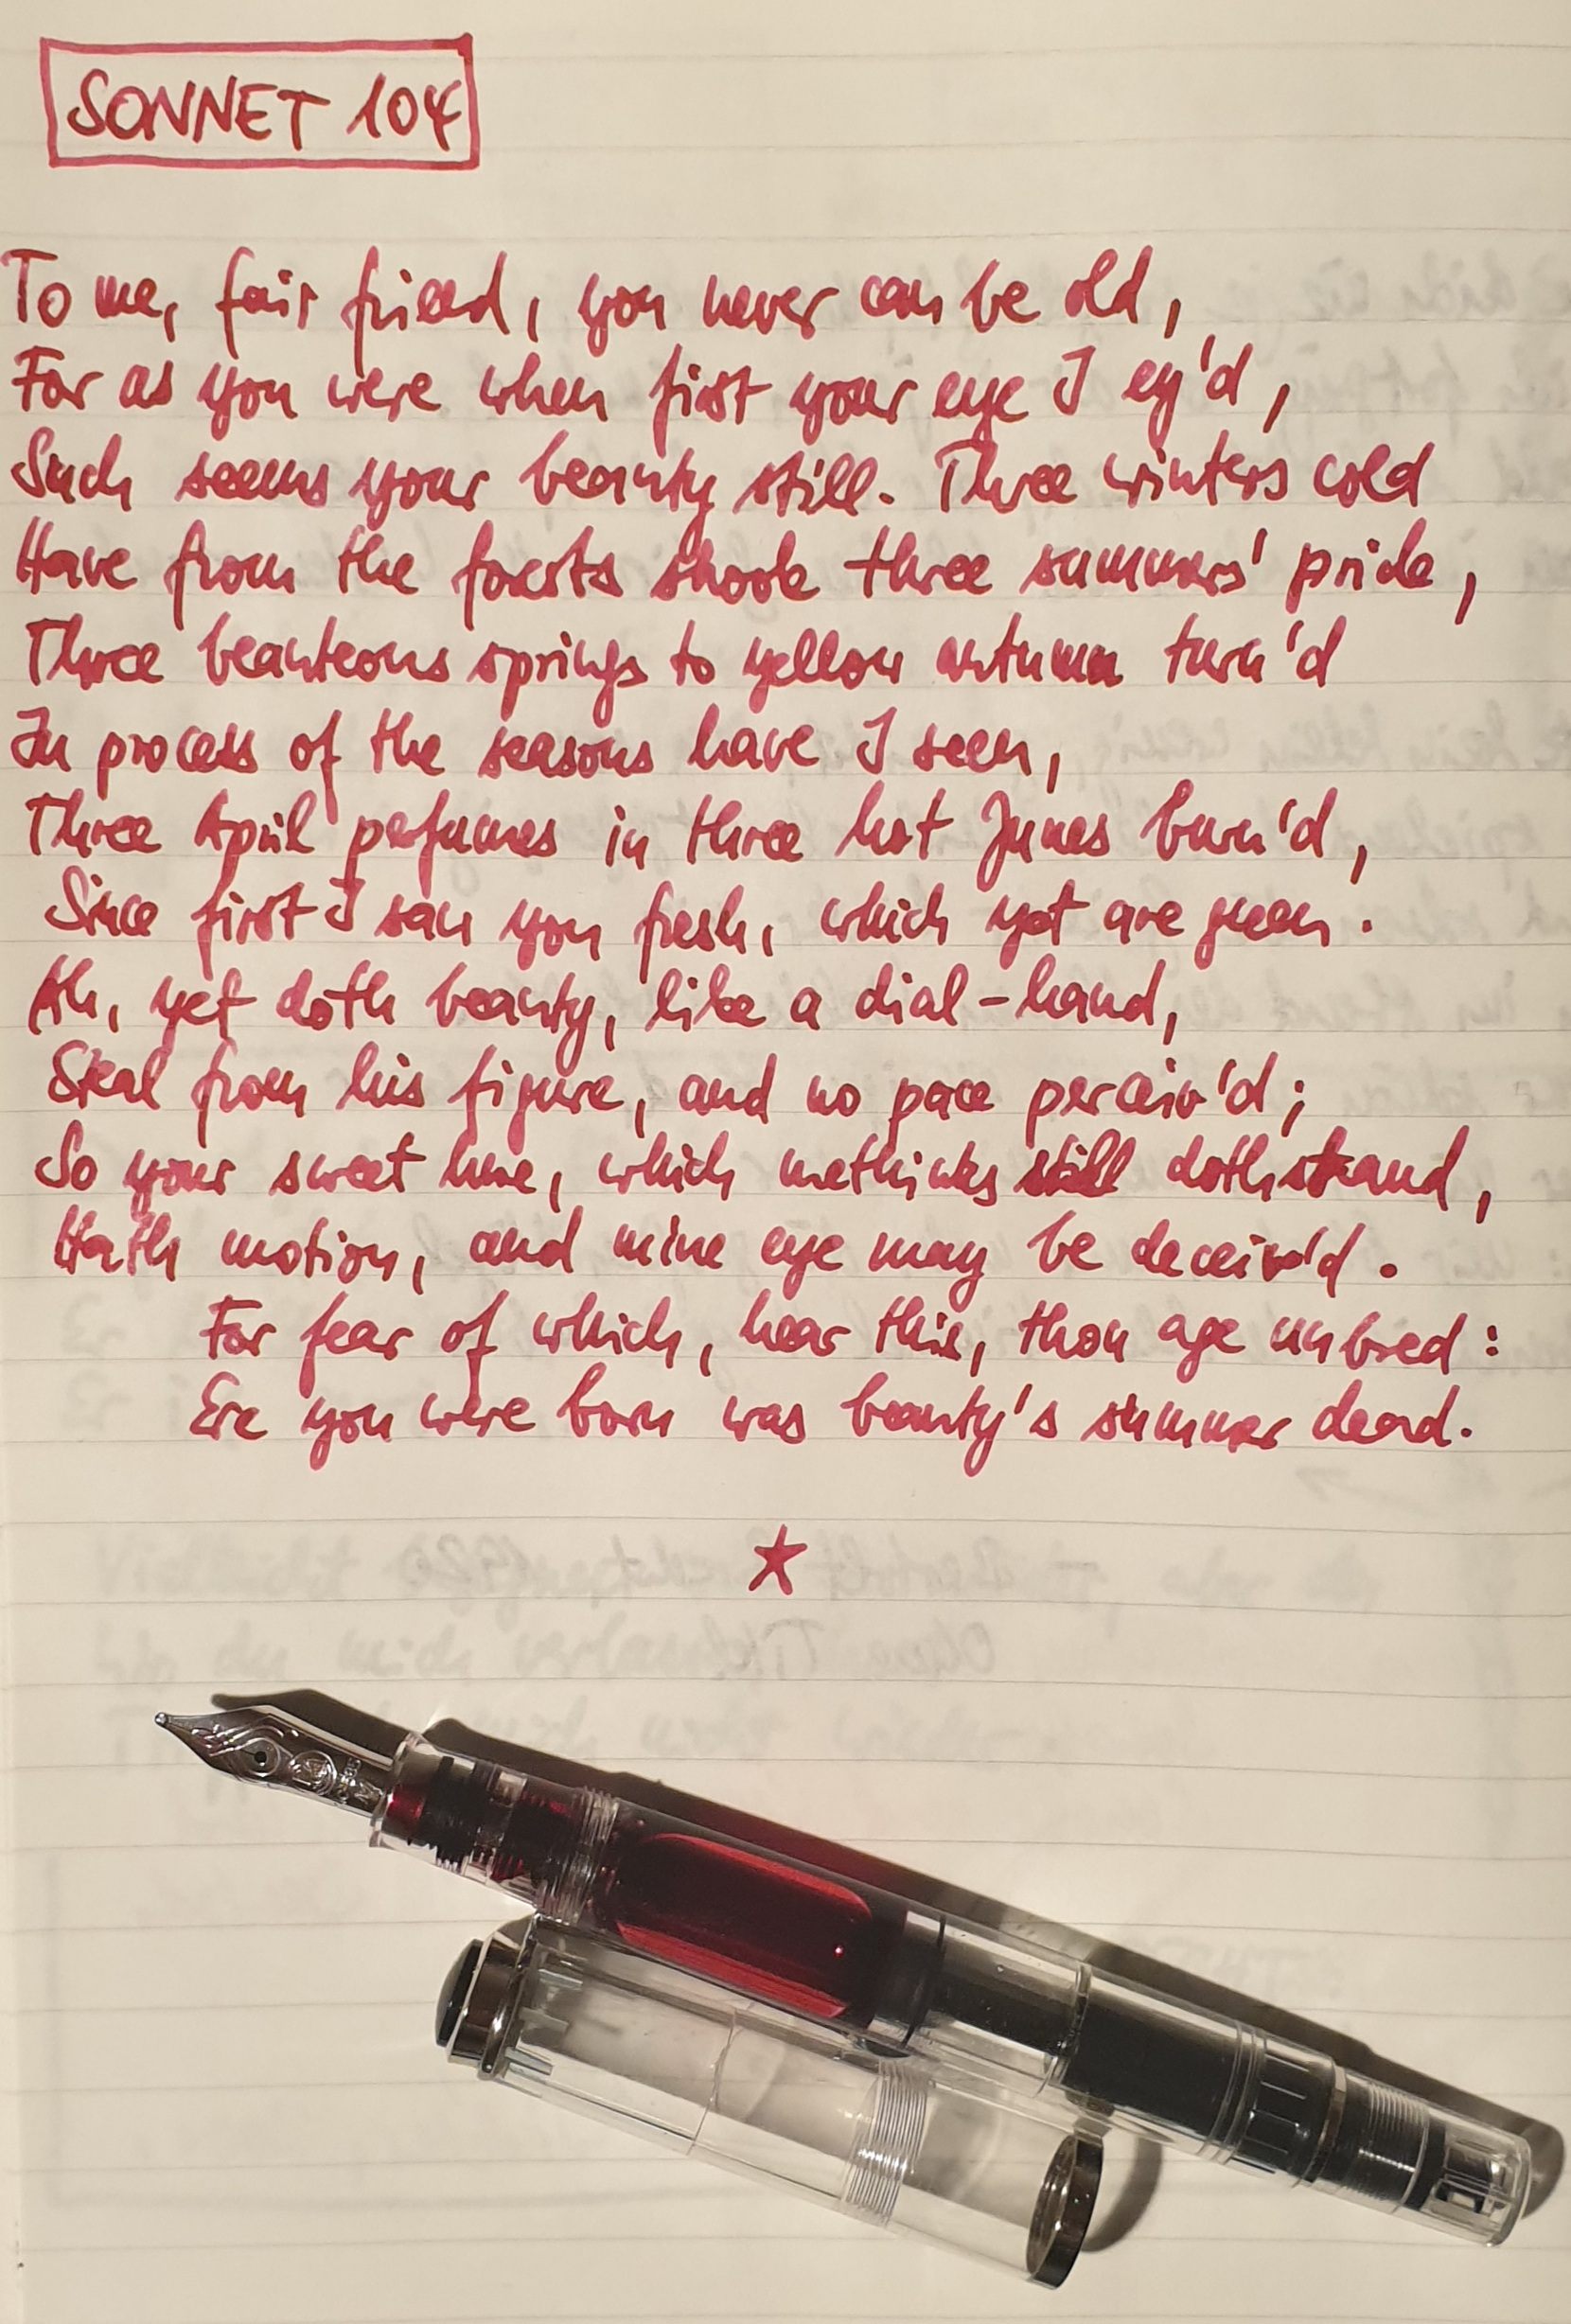 SONNET 104
To me, fair friend, you never can be old,
For as you were when first your eye I ey'd,
Such seems your beauty still. Three winters cold
Have from the forests shook three summers' pride,
Three beauteous springs to yellow autumn turn'd
In process of the seasons have I seen,
Three April perfumes in three hot Junes burn'd,
Since first I saw you fresh, which yet are green.
Ah, yet doth beauty, like a dial-hand,
Steal from his figure, and no pace perceiv'd;
So your sweet hue, which methinks still doth stand,
Hath motion, and mine eye may be deceiv'd.
For fear of which, hear this, thou age unbred:
Ere you were born was beauty's summer dead.